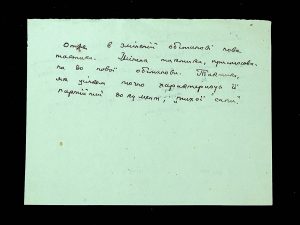 Отже в змінній обстанові нова
тактика. Гнучка тактика, пристосова-
на до нової обстанови. Тактика,
як цілком точно характеризує її
партійний документ, „тихої сапи“